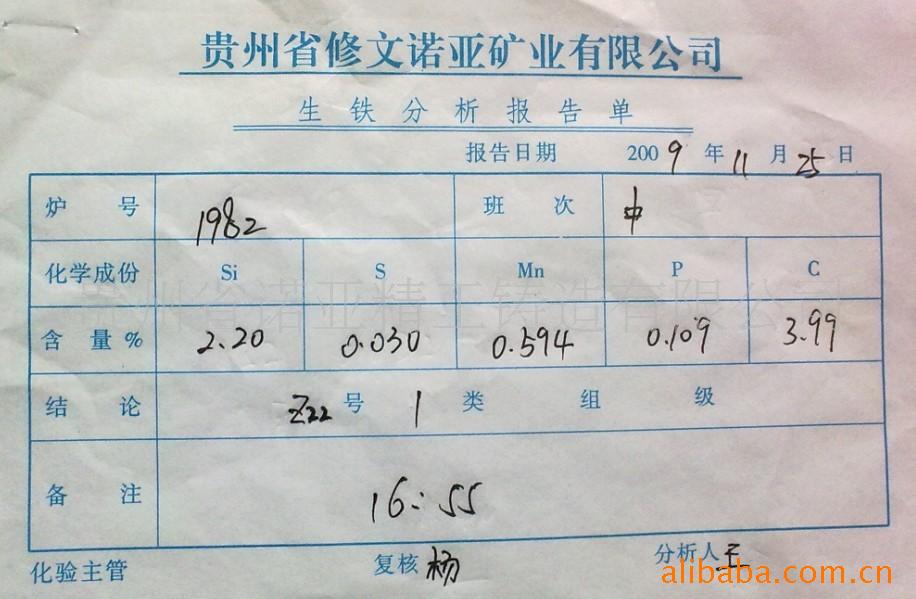 贵州省修文诺亚矿业有限公司
生铁分析报告单
报告日期 2009年11月25日
炉号 1982 班次 中
化学成份 Si S Mn P C
贵州省诺亚精工铸造有限公司
含量% 2.20 0.030 0.594 0.109 3.99
结论 Z22号 1类 组 级
备注 16:55
化验主管 复核 杨 分析人 王
alibaba.com.cn